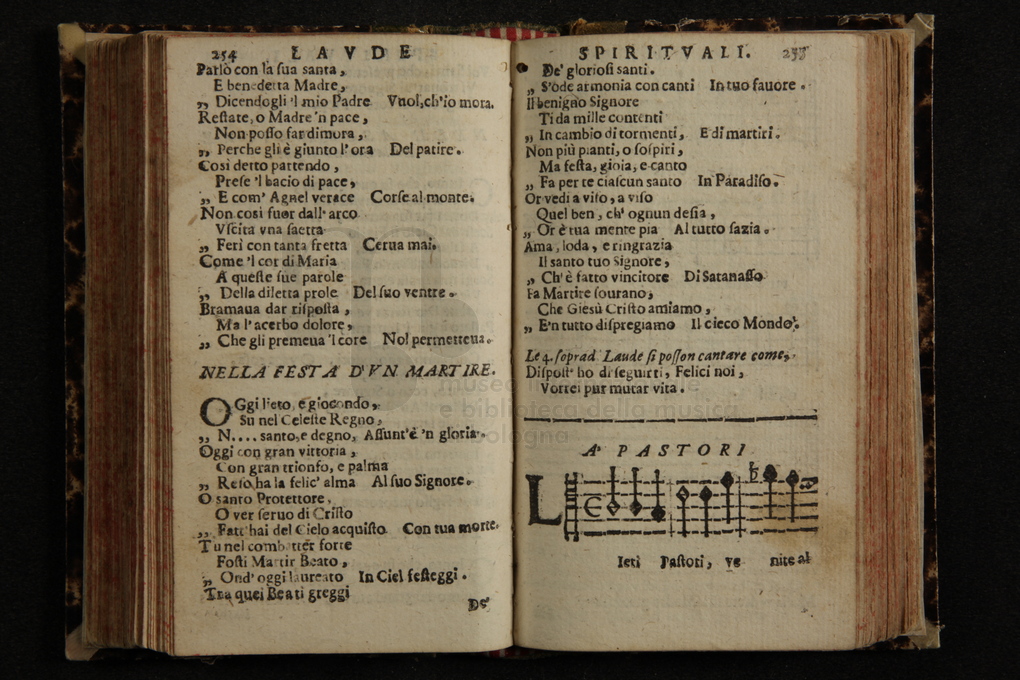 254 LAVDE
Parlò con la sua santa,
E benedetta Madre,
„ Dicendogli 'l mio Padre Vuol, ch'io mora.
Restate, o Madre 'n pace,
Non posso far dimora,
„ Perche gli è giunto l'ora Del patire.
Così detto partendo,
Prese 'l bacio di pace,
„ E com' Agnel verace Corse al monte.
Non così fuor dall' arco
Vscita vna saetta
„ Ferì con tanta fretta Cerua mai.
Come 'l cor di Maria
A queste sue parole
„ Della diletta prole Del suo ventre.
Bramaua dar risposta,
Ma l'acerbo dolore,
„ Che gli premeua 'l core Nol permetteua.
NELLA FESTA D'VN MARTIRE.
OGgi lieto, e giocondo,
Su nel Celeste Regno,
„ N.... santo, e degno, Assunt'è 'n gloria.
Oggi con gran vittoria,
Con gran trionfo, e palma
„ Reso ha la felic' alma Al suo Signore.
O santo Protettore,
O ver seruo di Cristo
„ Fatt' hai del Cielo acquisto Con tua morte.
Tu nel combatter forte
Fosti Martir Beato,
„ Ond' oggi laureato In Ciel festeggi.
Tra quei Beati greggi
De'
SPIRITVALI.
De' gloriosi santi.
„ S'ode armonia con canti In tuo fauore.
Il benigno Signore
Ti da mille contenti
„ In cambio di tormenti, E di martiri.
Non più pianti, o sospiri,
Ma festa, gioia, e canto
„ Fa per te ciascun santo In Paradiso.
Or vedi a viso, a viso
Quel ben, ch' ognun desia,
„ Or è tua mente pia Al tutto sazia.
Ama, loda, e ringrazia
Il santo tuo Signore,
„ Ch' è fatto vincitore Di Satanasso
Fa Martire sourano,
Che Giesù Cristo amiamo,
„ E'n tutto dispregiamo Il cieco Mondo.
Le 4. soprad. Laude si posson cantare come,
Dispost' ho di seguirti, Felici noi,
Vorrei pur mutar vita.
A' PASTORI
L
Ieti Pastori, ve nite al
museo
e biblioteca della musica
bologna